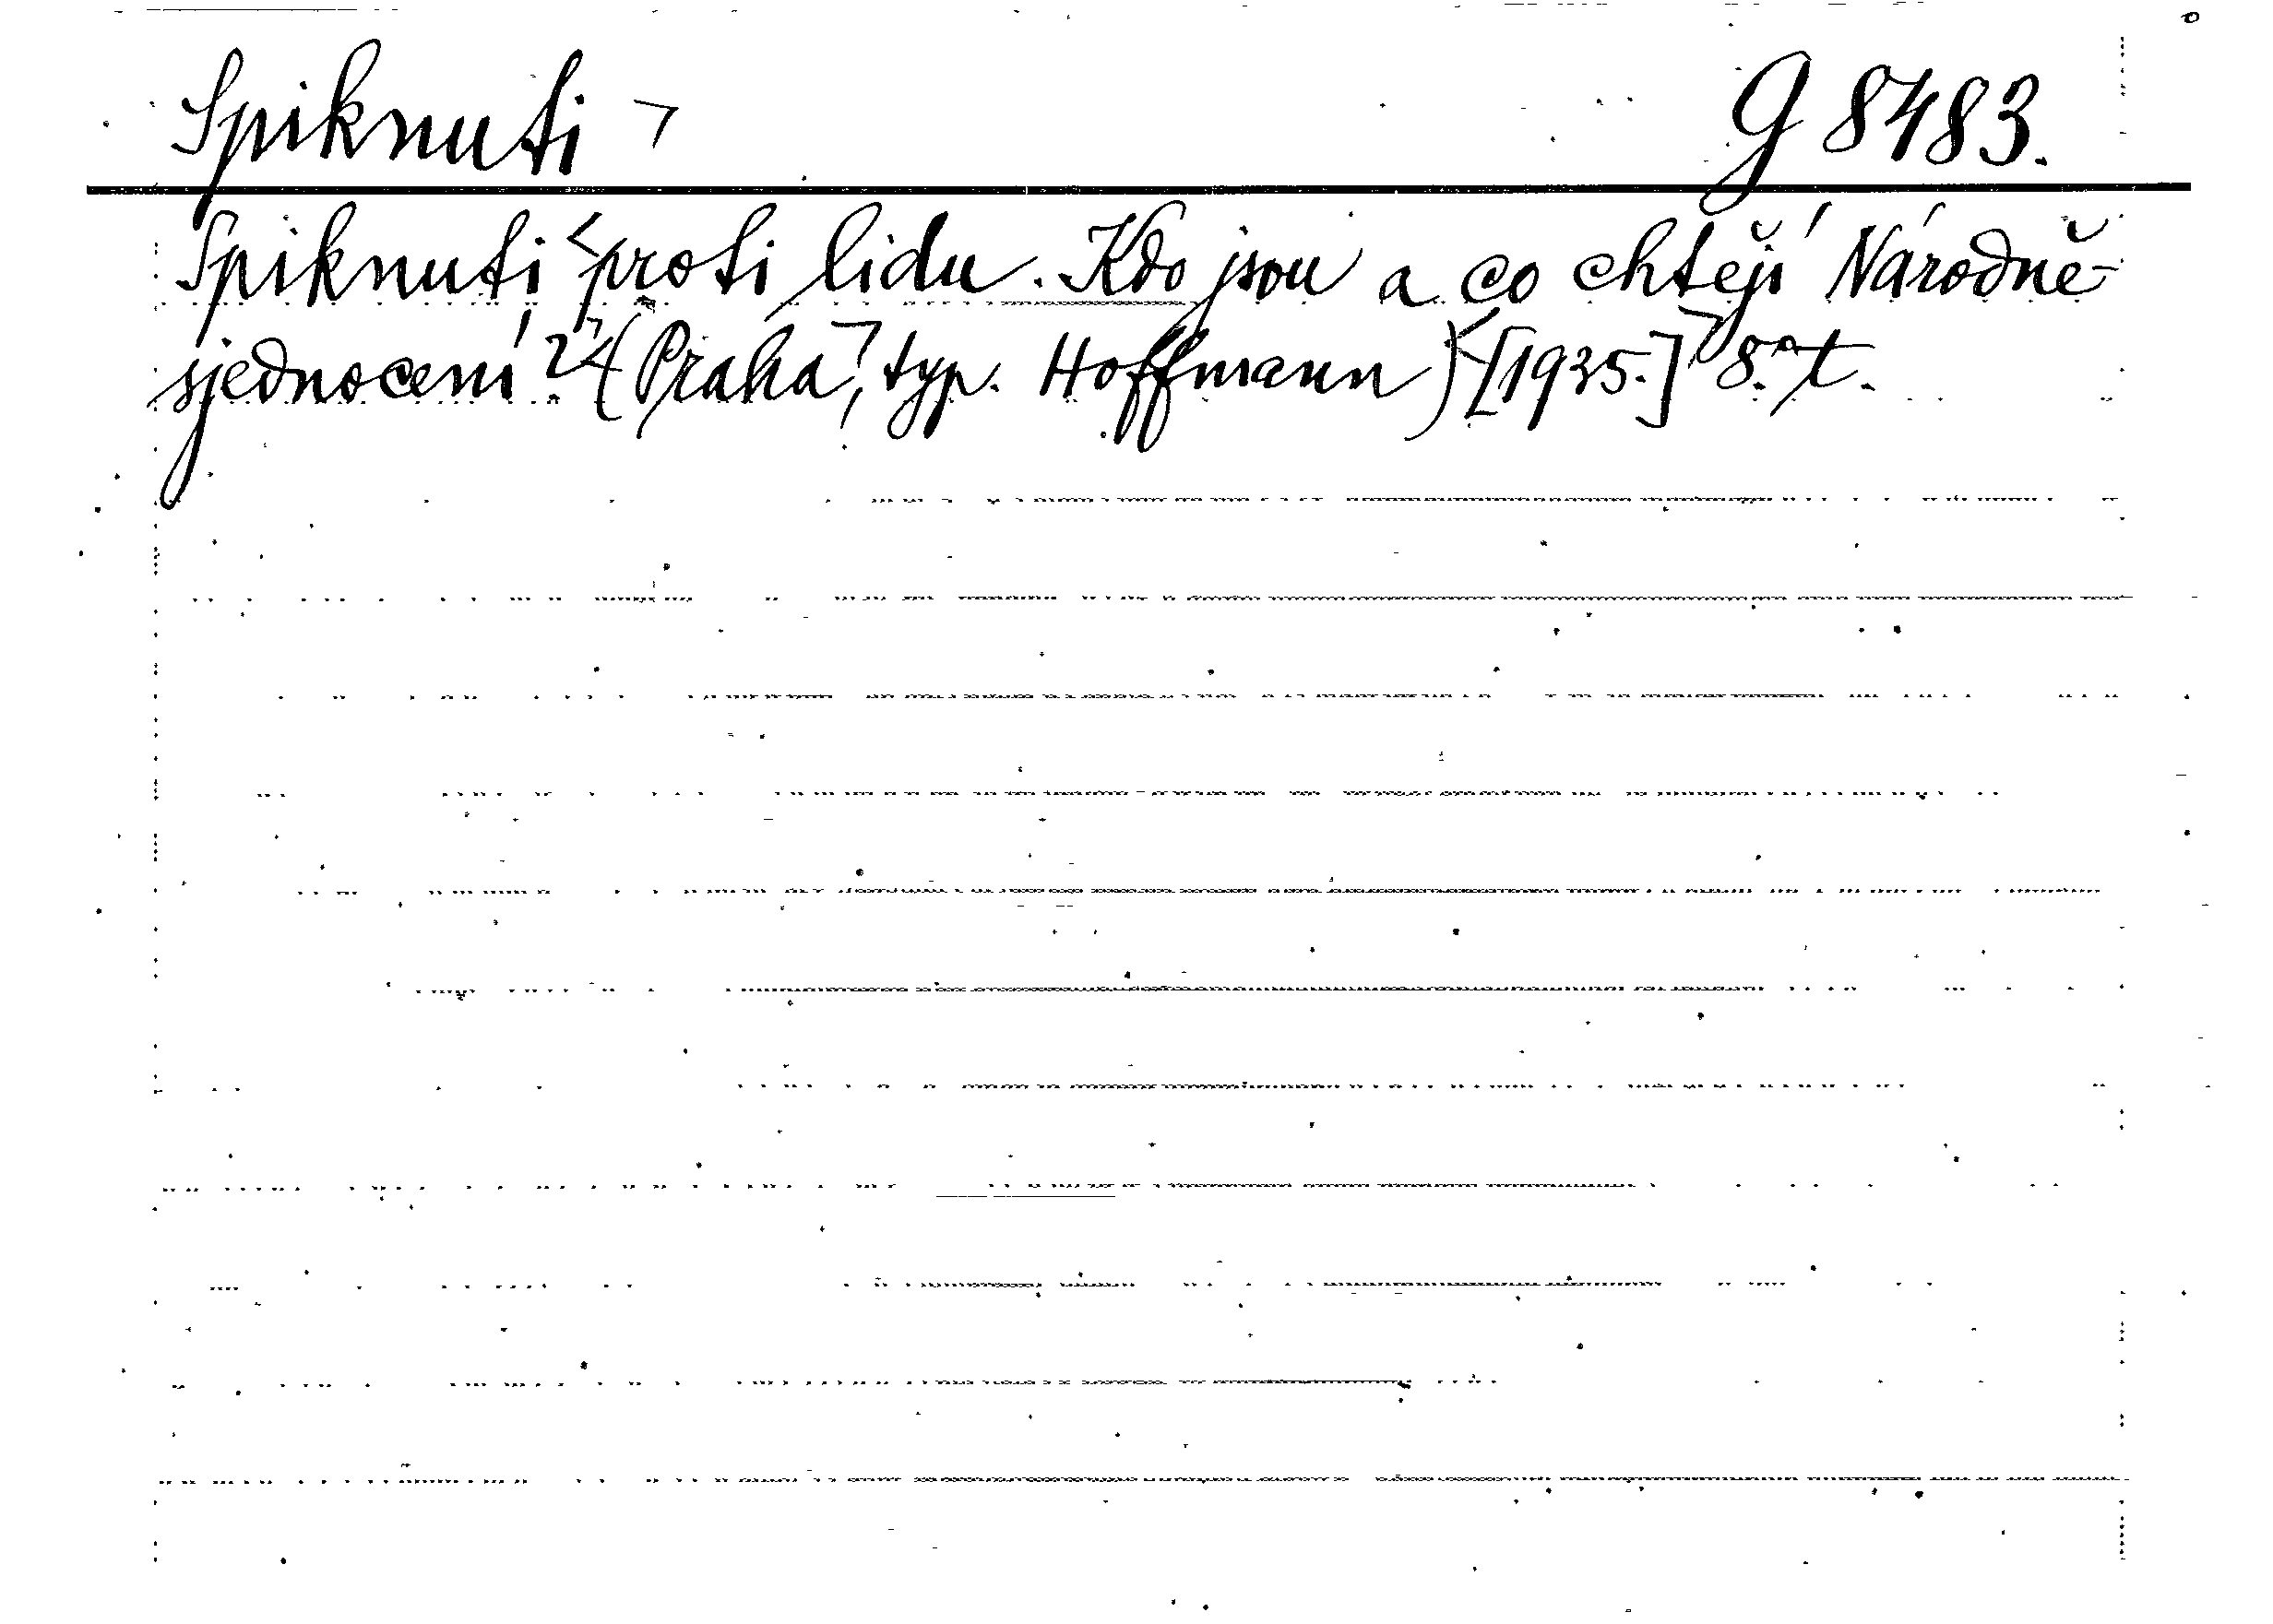 Spiknuti ¬ G 8483.
Spiknuti <proti lidu. Kdo jsou a co chtějí Národně-
sjednocení?¬ <(Praha¬, typ. Hoffmann) <[1935.]¬ 8.° t.